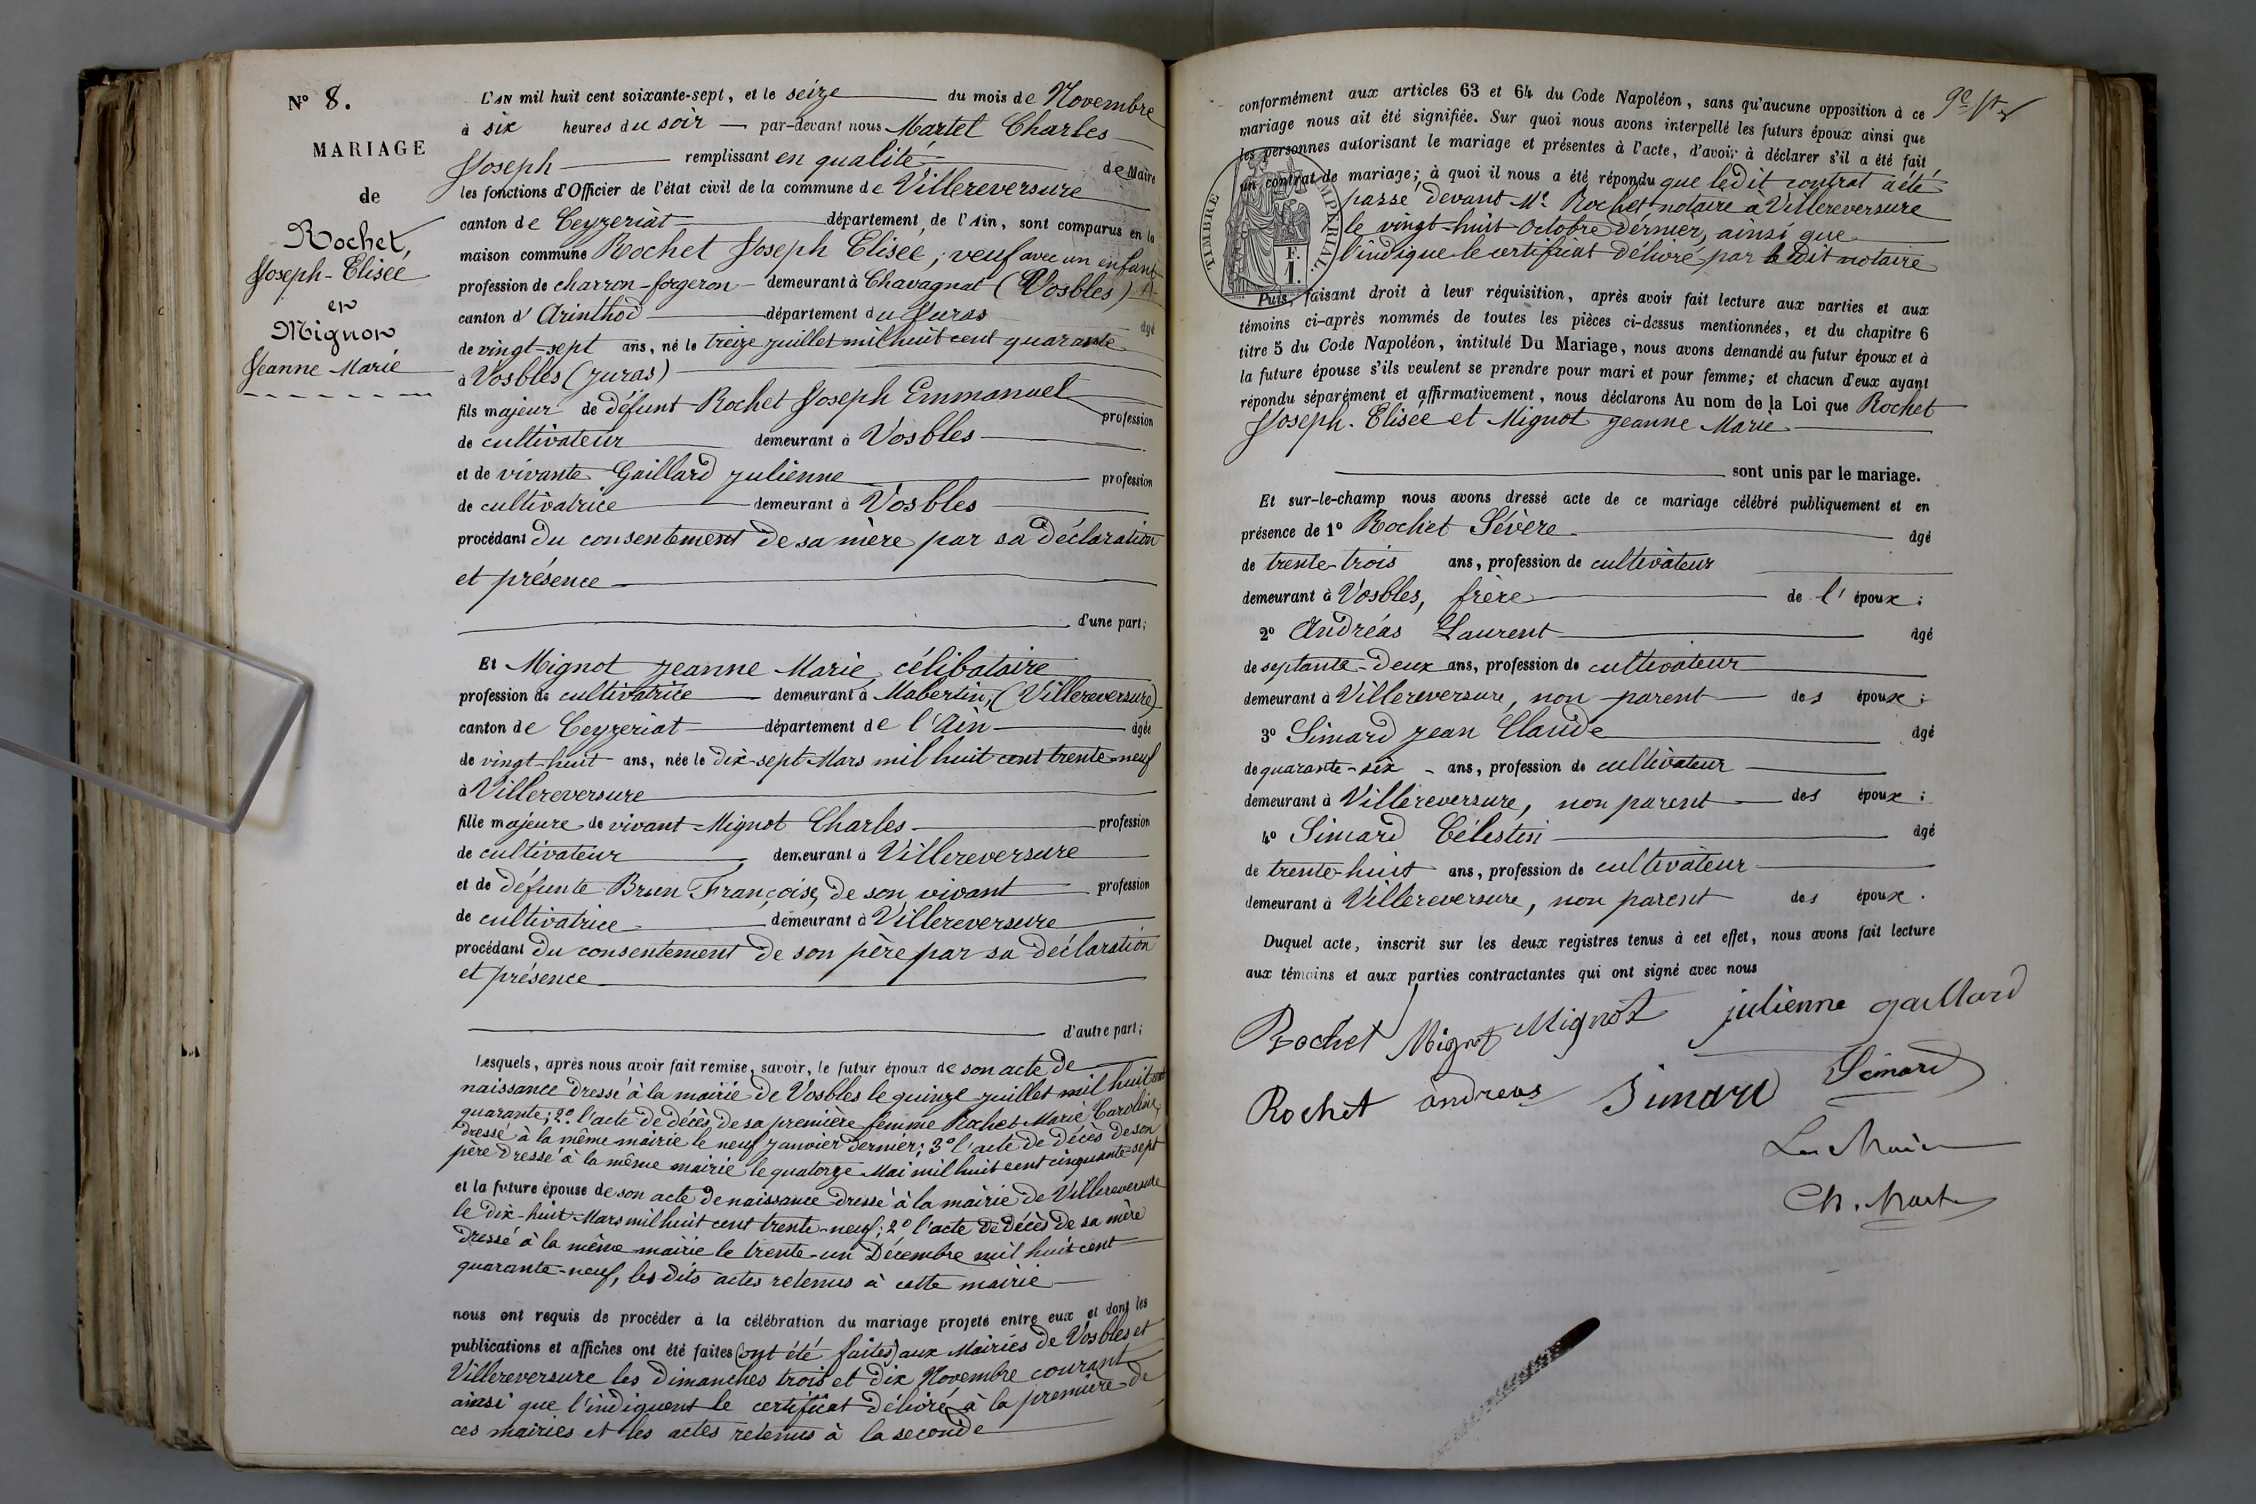 N° 8.
MARIAGE
de
Rochet,
Joseph-Elisée
et
Mignot
Jeanne Marie
L'AN mil huit cent soixante-sept, et le seize du mois de Novembre
à six heures du soir par-devant nous Martel Charles
Joseph remplissant en qualité de Maire
les fonctions d'Officier de l'état civil de la commune de Villereversure
canton de Ceyzeriat département de l'Ain, sont comparus en la
maison commune Rochet Joseph Elisée, veuf avec un enfant
profession de charron-forgeron demeurant à Chavagnat (Vosbles)
canton d'Arinthod département du Juras
âgé
de vingt-sept ans, né le treize juillet mil huit cent quarante
à Vosbles (Juras)
fils majeur de défunt Rochet Joseph Emmanuel
profession
de cultivateur demeurant à Vosbles
et de vivante Gaillard Julienne profession
de cultivatrice demeurant à Vosbles
procédant du consentement de sa mère par sa déclaration
et présence
d'une part;
Et Mignot Jeanne Marie, célibataire
profession de cultivatrice demeurant à Mabertin, (Villereversure)
canton de Ceyzeriat département de l'Ain âgée
de vingt-huit ans, née le dix-sept Mars mil huit cent trente-neuf
à Villereversure
fille majeure de vivant Mignot Charles profession
de cultivateur demeurant à Villereversure
et de défunte Brun Françoise, de son vivant profession
de cultivatrice demeurant à Villereversure
procédant du consentement de son père par sa déclaration
et présence
d'autre part;
Lesquels, après nous avoir fait remise, savoir, le futur époux de son acte de
naissance dressé à la mairie de Vosbles le quinze juillet mil huit cent
quarante; 2° l'acte de décès de sa première femme Rochet Marie Caroline,
dressé à la même mairie le neuf janvier dernier; 3° l'acte de décès de son
père dressé à la même mairie le quatorze Mai mil huit cent cinquante-sept
et la future épouse de son acte de naissance dressé à la mairie de Villereversure
le dix-huit Mars mil huit cent trente-neuf; 2° l'acte de décès de sa mère
dressé à la même mairie le trente-un Décembre mil huit cent
quarante-neuf, les dits actes retenus à cette mairie
nous ont requis de procéder à la célébration du mariage projeté entre eux et dont les
publications et affiches ont été faites (ont été faites) aux Mairies de Vosbles et
Villereversure les dimanches trois et dix Novembre courant
ainsi que l'indiquent le certificat délivré à la première de
ces mairies et les actes retenus à la seconde
conformément aux articles 63 et 64 du Code Napoléon, sans qu'aucune opposition à ce
mariage nous ait été signifiée. Sur quoi nous avons interpellé les futurs époux ainsi que
les personnes autorisant le mariage et présentes à l'acte, d'avoir à déclarer s'il a été fait
un contrat de mariage; à quoi il nous a été répondu que ledit contrat a été
passé devant Me Rochet notaire à Villereversure
le vingt-huit Octobre dernier, ainsi que
l'indique le certificat délivré par le dit notaire
TIMBRE IMPERIAL.
F.
1.
Puis, faisant droit à leur réquisition, après avoir fait lecture aux parties et aux
témoins ci-après nommés de toutes les pièces ci-dessus mentionnées, et du chapitre 6
titre 5 du Code Napoléon, intitulé Du Mariage, nous avons demandé au futur époux et à
la future épouse s'ils veulent se prendre pour mari et pour femme; et chacun d'eux ayant
répondu séparément et affirmativement, nous déclarons Au nom de la Loi que Rochet
Joseph-Elisée et Mignot Jeanne Marie
sont unis par le mariage.
Et sur-le-champ nous avons dressé acte de ce mariage célébré publiquement et en
présence de 1° Rochet Sévère âgé
de trente-trois ans, profession de cultivateur
demeurant à Vosbles, frère de l'époux;
2° Andréas Laurent âgé
de septante-deux ans, profession de cultivateur
demeurant à Villereversure, non parent des époux;
3° Simard Jean Claude âgé
de quarante-six ans, profession de cultivateur
demeurant à Villereversure, non parent des époux;
4° Simard Célestin âgé
de trente-huit ans, profession de cultivateur
demeurant à Villereversure, non parent des époux.
Duquel acte, inscrit sur les deux registres tenus à cet effet, nous avons fait lecture
aux témoins et aux parties contractantes qui ont signé avec nous
Rochet Mignot Mignot julienne gaillard
Rochet andreas Simard Simard
Le Maire
Ch. Martel